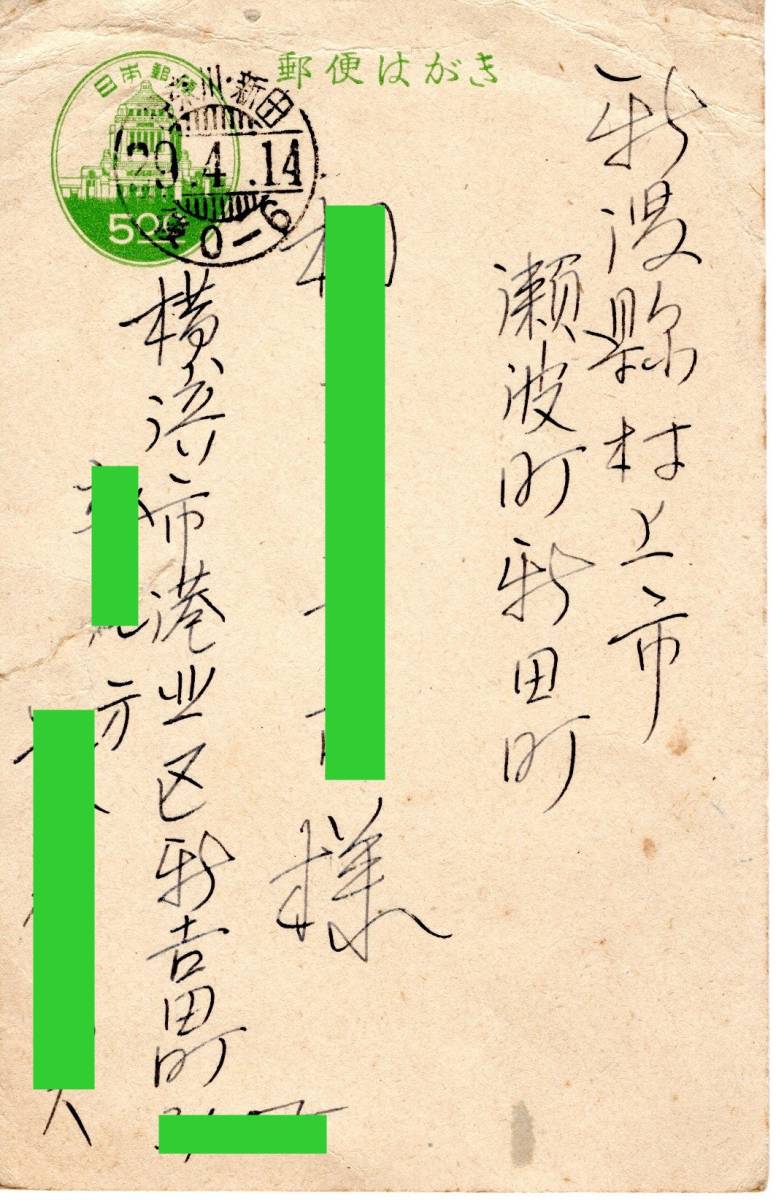 郵便はがき
日本郵便
500
川・新田
29.4.14
后0-6
新潟縣村上市
瀬波町新田町
様
横浜市港北区新吉田町
方